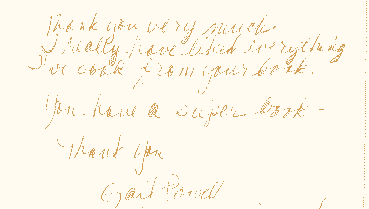 Thank you very much.
I really have liked everything
I've cook from your book.
You have a super book -
Thank you
Gail Powell